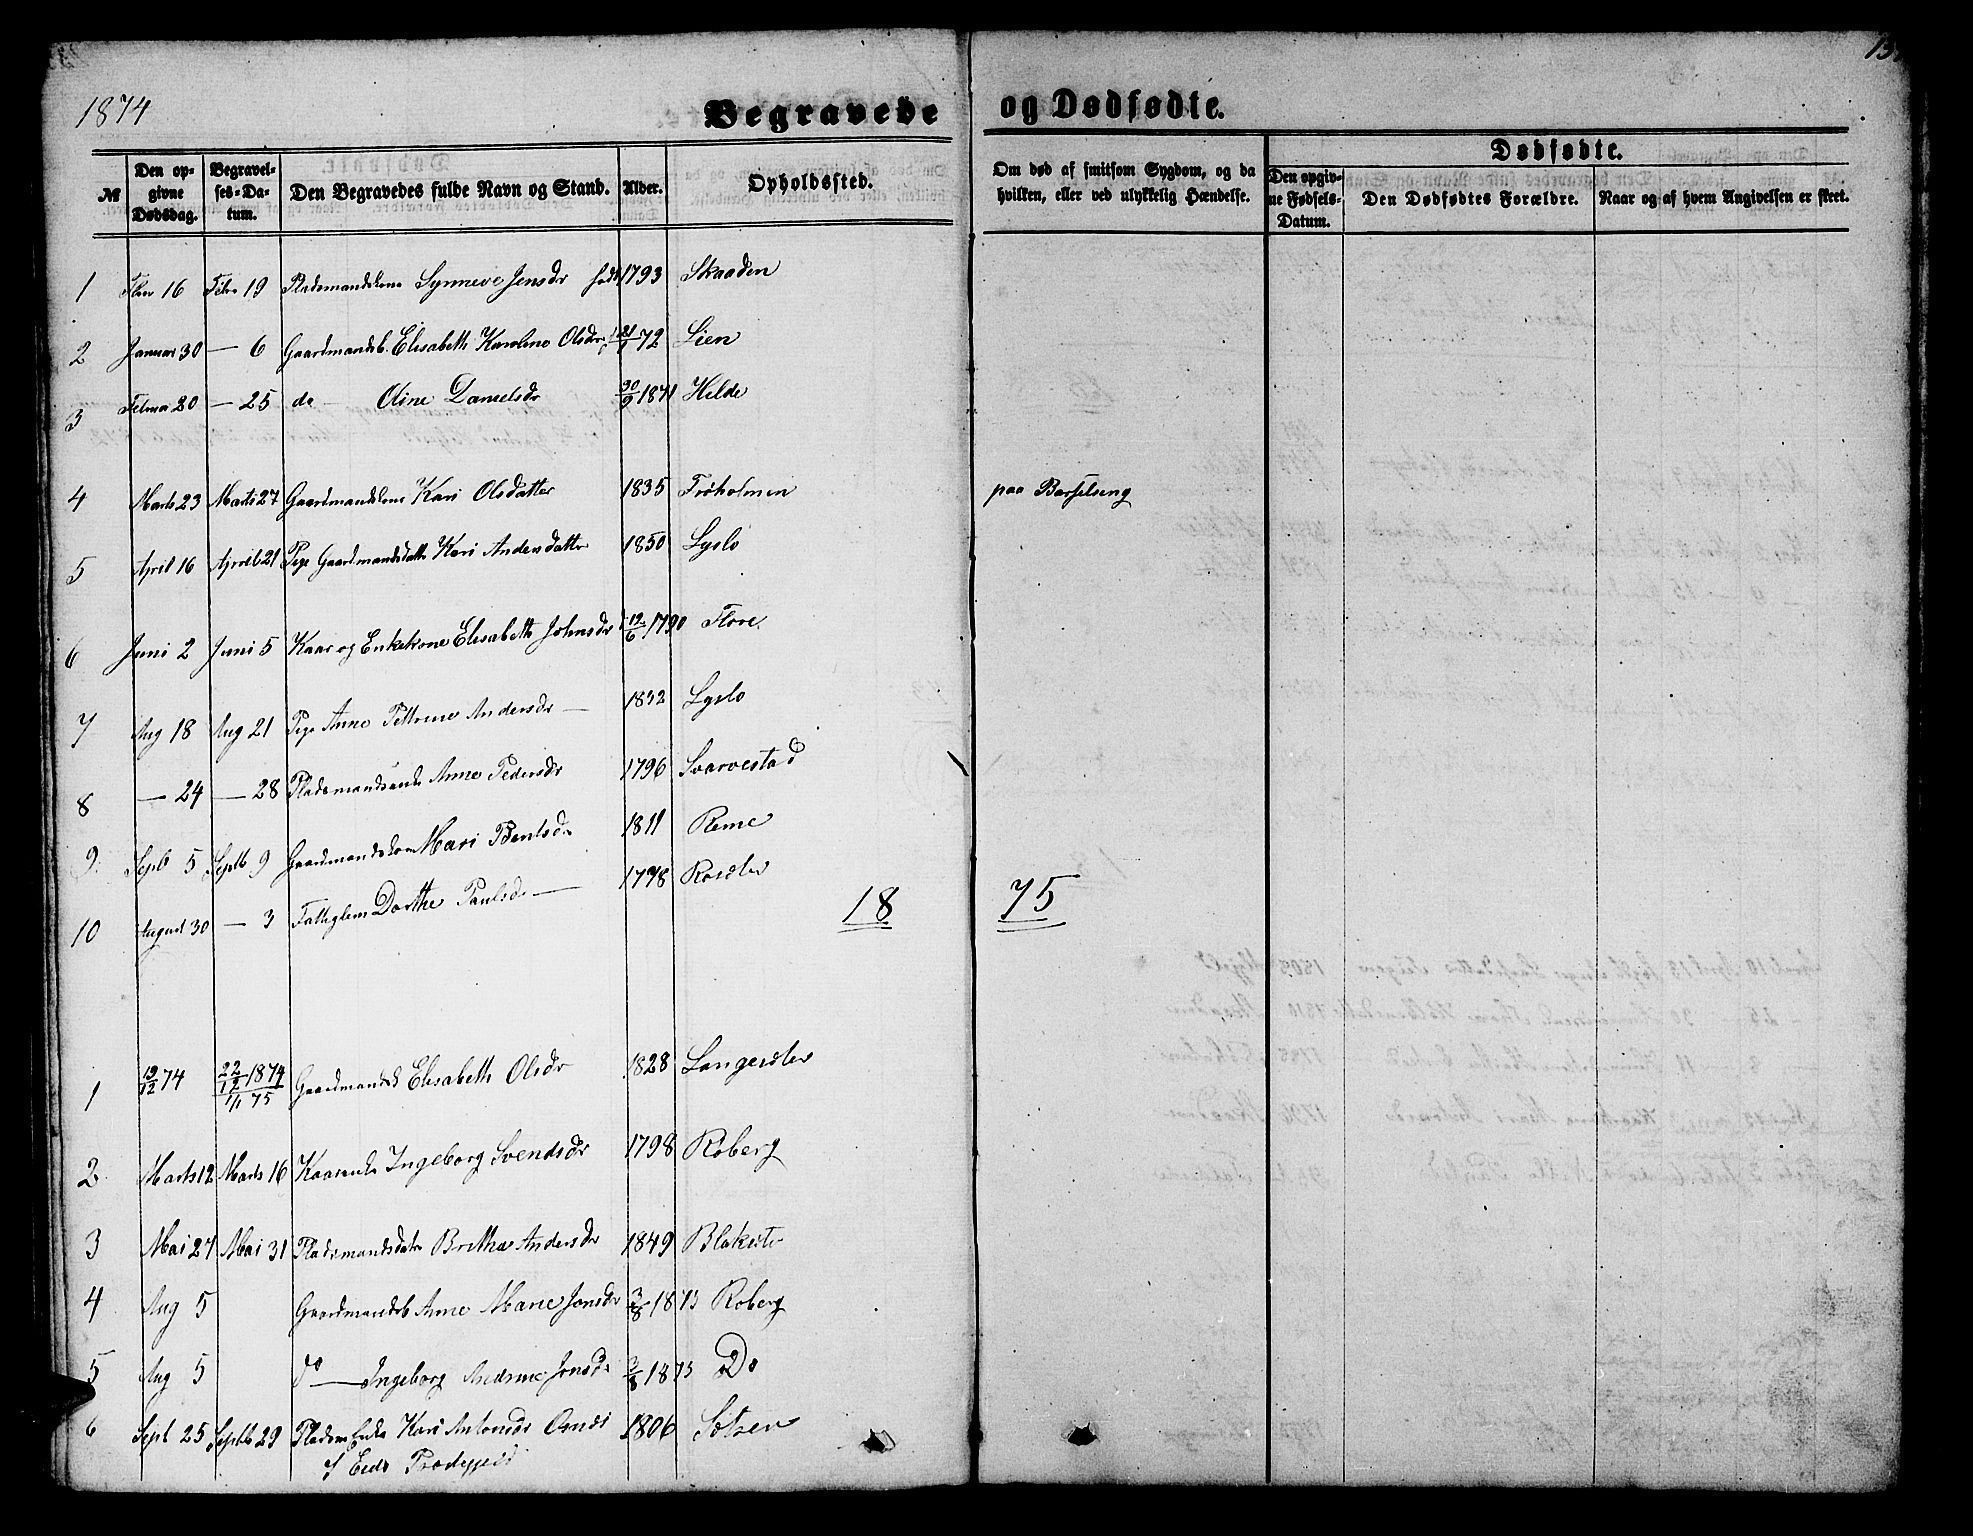 1874
Begravede og Dødfødte.
13
№ Den opgivne Dødsdag. Begravelses-Datum. Den Begravedes fulde Navn og Stand. Alder. Opholdssted. Om død af smitsom Sygdom, og da hvilken, eller ved ulykkelig Hændelse. Dødfødte. Den opgivne Fødsels-Datum. Den Dødfødtes Forældre. Naar og af hvem Angivelsen er skeet.
1 16 19 Synneve Jensdr 1793 Skaaden
2 Januar 30 — 6 Gaardmandsb. Elisabeth Karoline Olsdr 72 Lien
3 20 — 25 do — Oline Danielsdr 30/9 1871 Helde
4 Marts 23 Marts 27 Gaardmandskone Kari Olsdatter 1835 paa Barselseng
5 April 16 April 21 Pige Gaardmandsdatter Kari Andersdatter 1850 Lyslo
6 Juni 2 Juni 5 Kaar og Enkekone Elisabeth Johnsdr 12/6 1790 Flore.
7 Aug 18 Aug 21 Pige Anne Pettrine Andersdr — 1832 Lyslo
8 — 24 — 28 Pladsmandsenke Anne Pedersdr 1796 Svarvestad
9. Septb 5 Septb 9 Gaardmandskone Mari Bentsdr 1811 Reme
10 August 30 — 3 Dorthe Paulsdr — 1798
18 75
1 19/12 74 22/12 1874 1/1 75 Elisabeth Olsdr 1828
2 Marts 12 Marts 16 Kaarenke Ingeborg Svendsdr 1798 Roberg
3 Mai 27 Mai 31 Pladsmandsdatr Brithe Andersdr 1849
4 Aug 5 Gaardmandsb Anne Marie Jonsdr 3/8 1875 Roberg
5 Aug 5 do — Ingeborg Andrine Jonsdr 3/8 1875 Do
6 Sept 25 Septb 29 Kari Antonsdr 1806